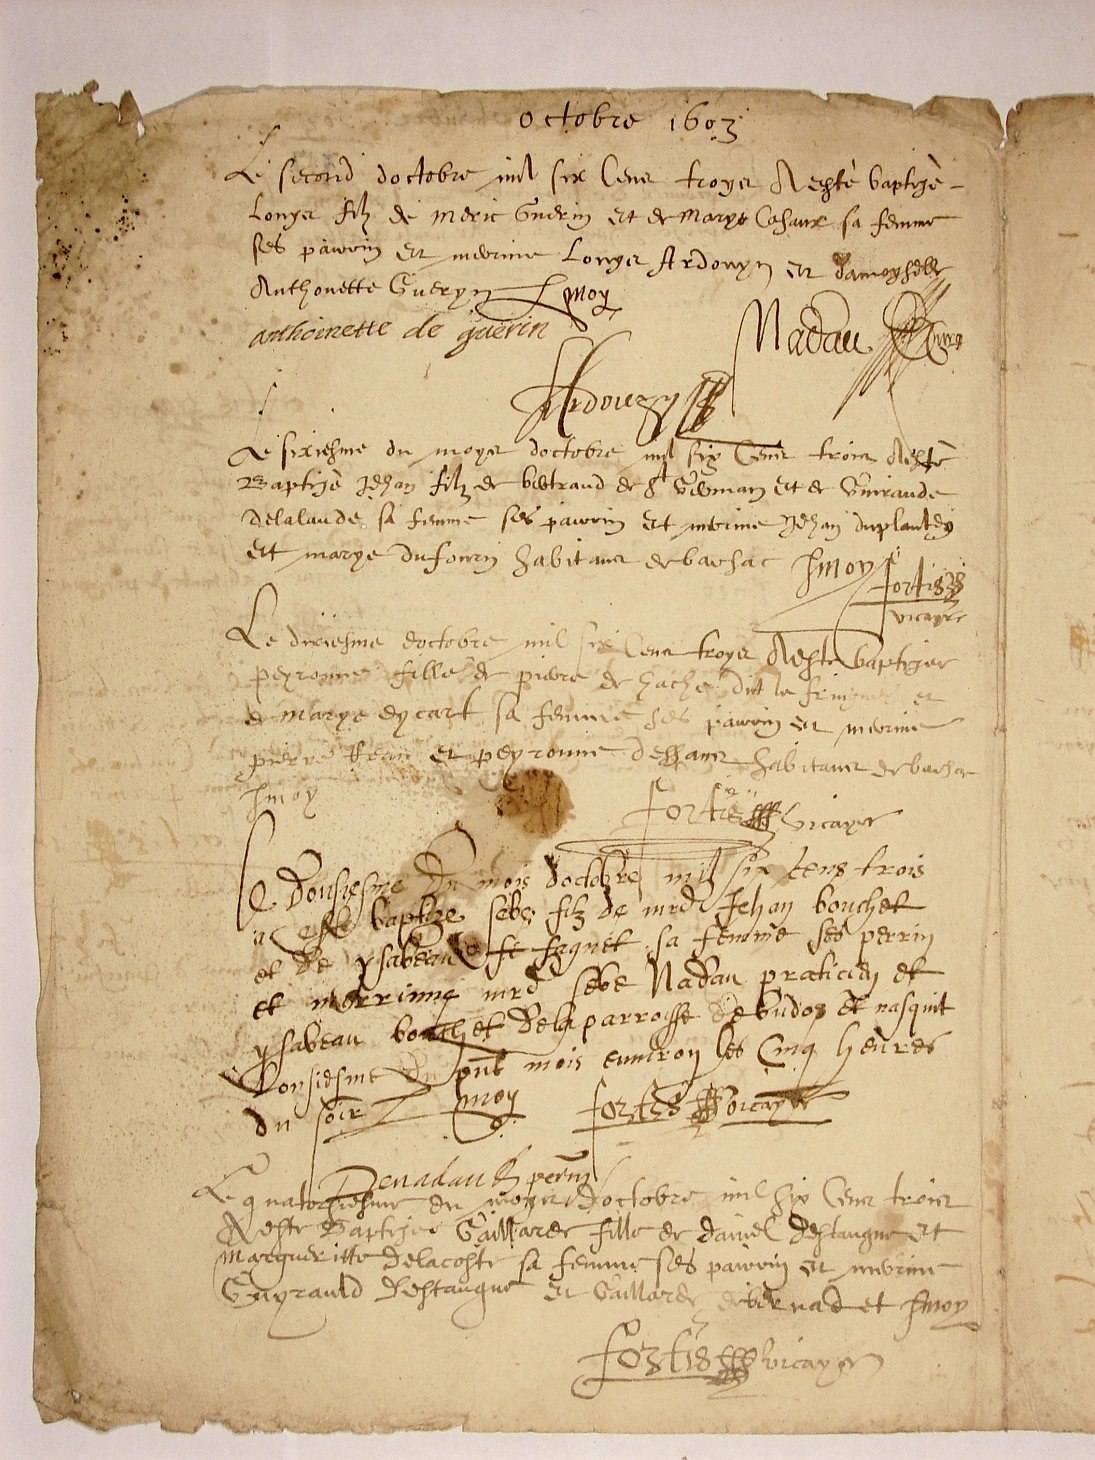 octobre 1603
Le second doctobre mil six Cens troys A este baptise
Lonys filz de Meric Guerin et de Marye Cosaux sa femme
ses parrin et merrine Lonys Ardouyn et damoyselle
Anthonette Gueryn Pmoy
anthoinette de guerin
Nadau Cure
Ardouyn
Le sixiesme du moys doctobre mil six Cens trois A este
Baptise Jehan filz de bertrand de St Germain et de Guiraude
delalande sa femme ses parrin et merrine Jehan duplantey
et marye dufourn habitans de barsac Pmoy
fortis
vicayre
Le dixiesme doctobre mil six Cens troys A este baptisee
peyronne fille de pierre de hache dit le et
de Marye eycart sa femme ses parrin et merrine
pierre et peyronne dessans habitans de barsac
Pmoy
fortis vicayre
Le Dousiesme Du mois doctobre mil six cens trois
a este baptize sebe filz de mrd Jehan bouchet
et de ysabeau de faguet sa femme ses perrin
et merrinne mrd sebe Nadau praticien et
ysabeau bouchet dela parroisse de budos et nasquit
Lonsiesme Du pnt mois environ les Cinq heures
du soir Pmoy fortis vicayre
Denadau perrin
Le quatorsiesme du moys doctobre mil six Cens trois
A este Baptisee Gaillarde fille de daniel destangue et
Margueritte delacoste sa femme ses parrin et merrine
Guyrauld destangue et Gaillarde debernadet Pmoy
fortis vicayre